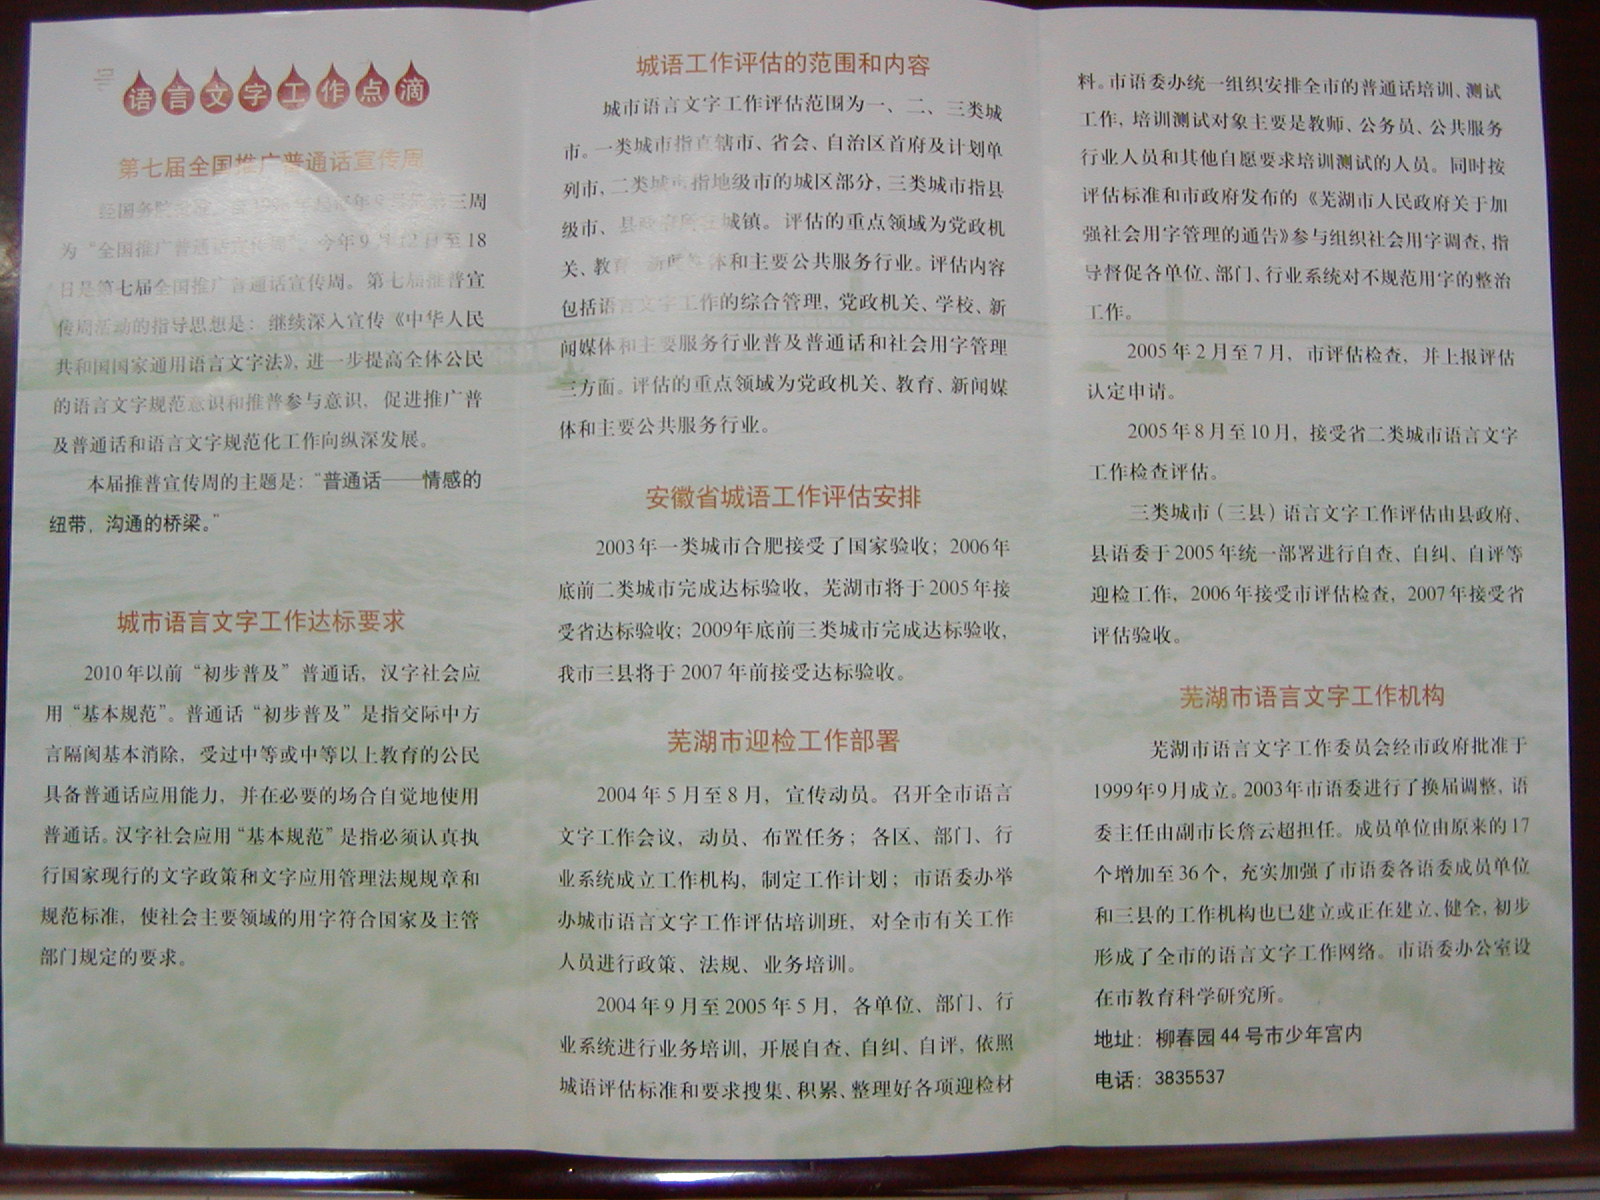 语言文字工作点滴
第七届全国推广普通话宣传周
三周
为“全国推广普通话宣传周”。今年9月12日至18
日是第七届全国推广普通话宣传周。第七届推普宣
传周活动的指导思想是：继续深入宣传《中华人民
共和国国家通用语言文字法》，进一步提高全体公民
的语言文字规范意识和推普参与意识，促进推广普
及普通话和语言文字规范化工作向纵深发展。
本届推普宣传周的主题是：“普通话——情感的
纽带，沟通的桥梁。”
城市语言文字工作达标要求
2010年以前“初步普及”普通话，汉字社会应
用“基本规范”。普通话“初步普及”是指交际中方
言隔阂基本消除，受过中等或中等以上教育的公民
具备普通话应用能力，并在必要的场合自觉地使用
普通话。汉字社会应用“基本规范”是指必须认真执
行国家现行的文字政策和文字应用管理法规规章和
规范标准，使社会主要领域的用字符合国家及主管
部门规定的要求。
城语工作评估的范围和内容
城市语言文字工作评估范围为一、二、三类城
市。一类城市指直辖市、省会、自治区首府及计划单
列市，二类城市指地级市的城区部分，三类城市指县
级市、县政府所在城镇。评估的重点领域为党政机
关、教育、新闻媒体和主要公共服务行业。评估内容
包括语言文字工作的综合管理，党政机关、学校、新
闻媒体和主要服务行业普及普通话和社会用字管理
三方面。评估的重点领域为党政机关、教育、新闻媒
体和主要公共服务行业。
安徽省城语工作评估安排
2003年一类城市合肥接受了国家验收；2006年
底前二类城市完成达标验收，芜湖市将于2005年接
受省达标验收；2009年底前三类城市完成达标验收，
我市三县将于2007年前接受达标验收。
芜湖市迎检工作部署
2004年5月至8月，宣传动员。召开全市语言
文字工作会议，动员、布置任务；各区、部门、行
业系统成立工作机构，制定工作计划；市语委办举
办城市语言文字工作评估培训班，对全市有关工作
人员进行政策、法规、业务培训。
2004年9月至2005年5月，各单位、部门、行
业系统进行业务培训，开展自查、自纠、自评，依照
城语评估标准和要求搜集、积累、整理好各项迎检材
料。市语委办统一组织安排全市的普通话培训、测试
工作，培训测试对象主要是教师、公务员、公共服务
行业人员和其他自愿要求培训测试的人员。同时按
评估标准和市政府发布的《芜湖市人民政府关于加
强社会用字管理的通告》参与组织社会用字调查，指
导督促各单位、部门、行业系统对不规范用字的整治
工作。
2005年2月至7月，市评估检查，并上报评估
认定申请。
2005年8月至10月，接受省二类城市语言文字
工作检查评估。
三类城市（三县）语言文字工作评估由县政府、
县语委于2005年统一部署进行自查、自纠、自评等
迎检工作，2006年接受市评估检查，2007年接受省
评估验收。
芜湖市语言文字工作机构
芜湖市语言文字工作委员会经市政府批准于
1999年9月成立。2003年市语委进行了换届调整，语
委主任由副市长詹云超担任。成员单位由原来的17
个增加至36个，充实加强了市语委各语委成员单位
和三县的工作机构也已建立或正在建立、健全，初步
形成了全市的语言文字工作网络。市语委办公室设
在市教育科学研究所。
地址：柳春园44号市少年宫内
电话：3835537